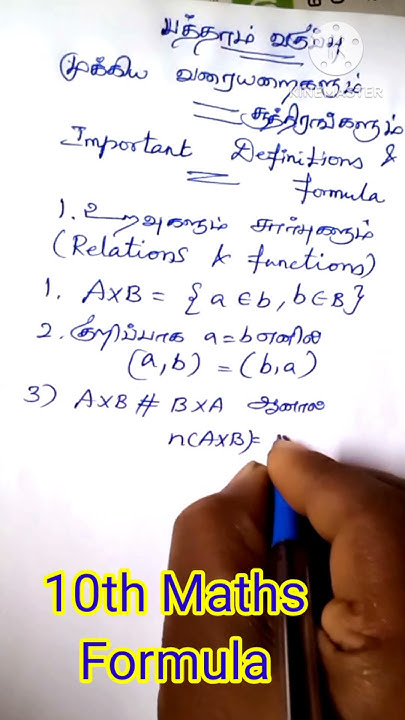 பத்தாம் வகுப்பு
முக்கிய வரையறைகளும்
KINEMASTER
சூத்திரங்களும்
Important Definitions &
formula
1. உறவுகளும் சார்புகளும்
(Relations & functions)
1. AxB = {a ∈ b, b ∈ B}
2. குறிப்பாக a = b எனில்
(a,b) = (b,a)
3) AxB # BxA ஆனால்
n(AxB)=
10th Maths
Formula